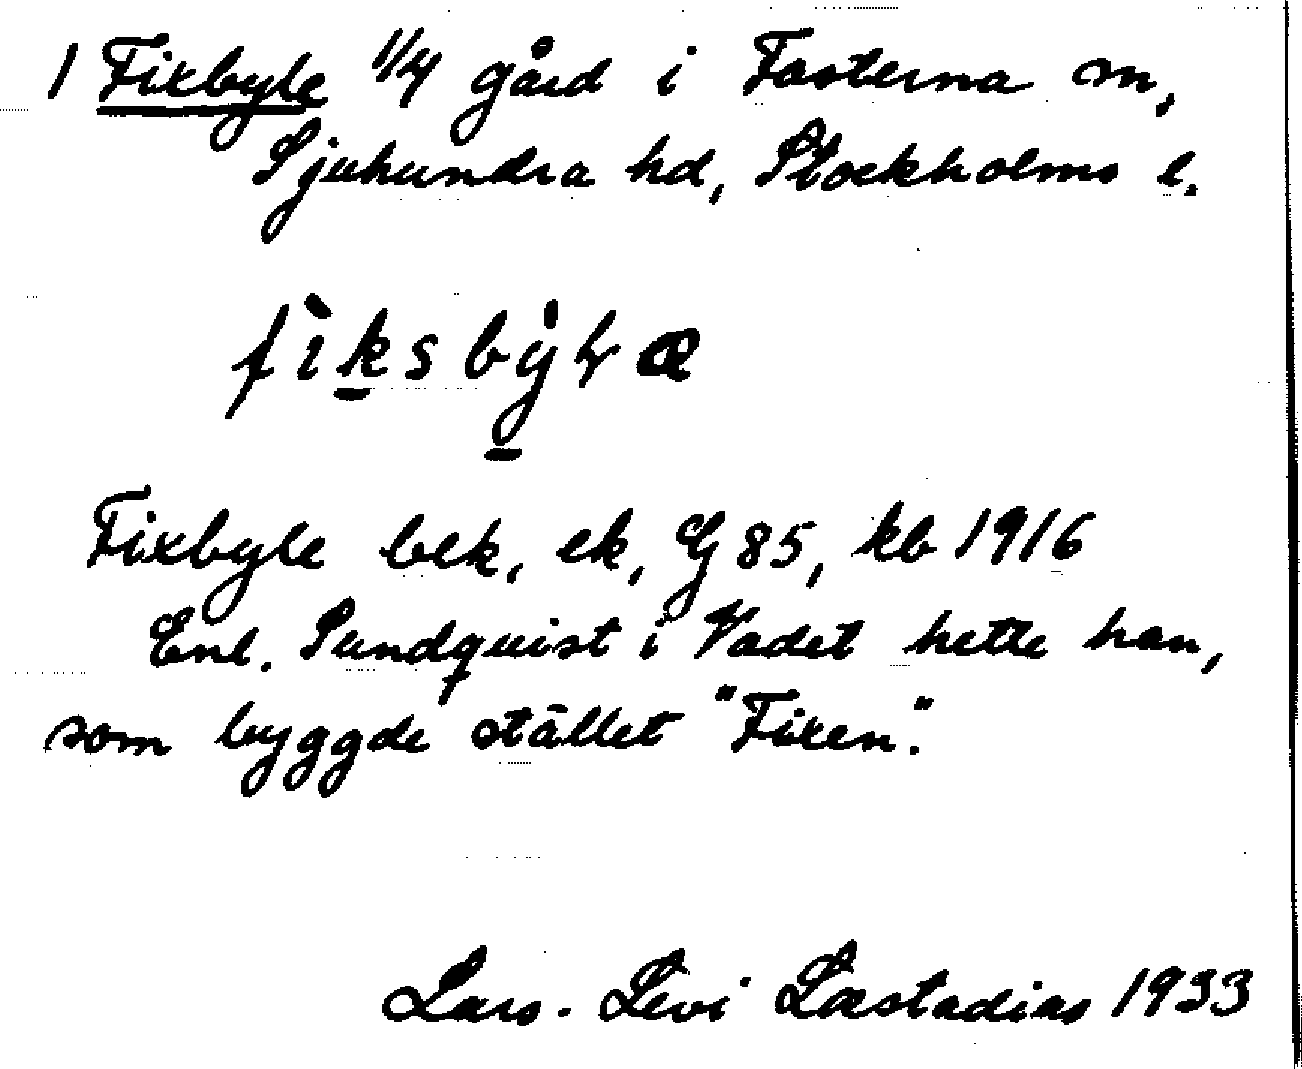 1 Fixbyle 1/4 gård i Fasterna sn,
Sjuhundra hd, Stockholms l.
Fixbyle bek, ek, G 85, kb 1916
Enl. Sundquist i Vadet hette han,
som byggde stället "Fixen".
Lars-Levi Læstadius 1933